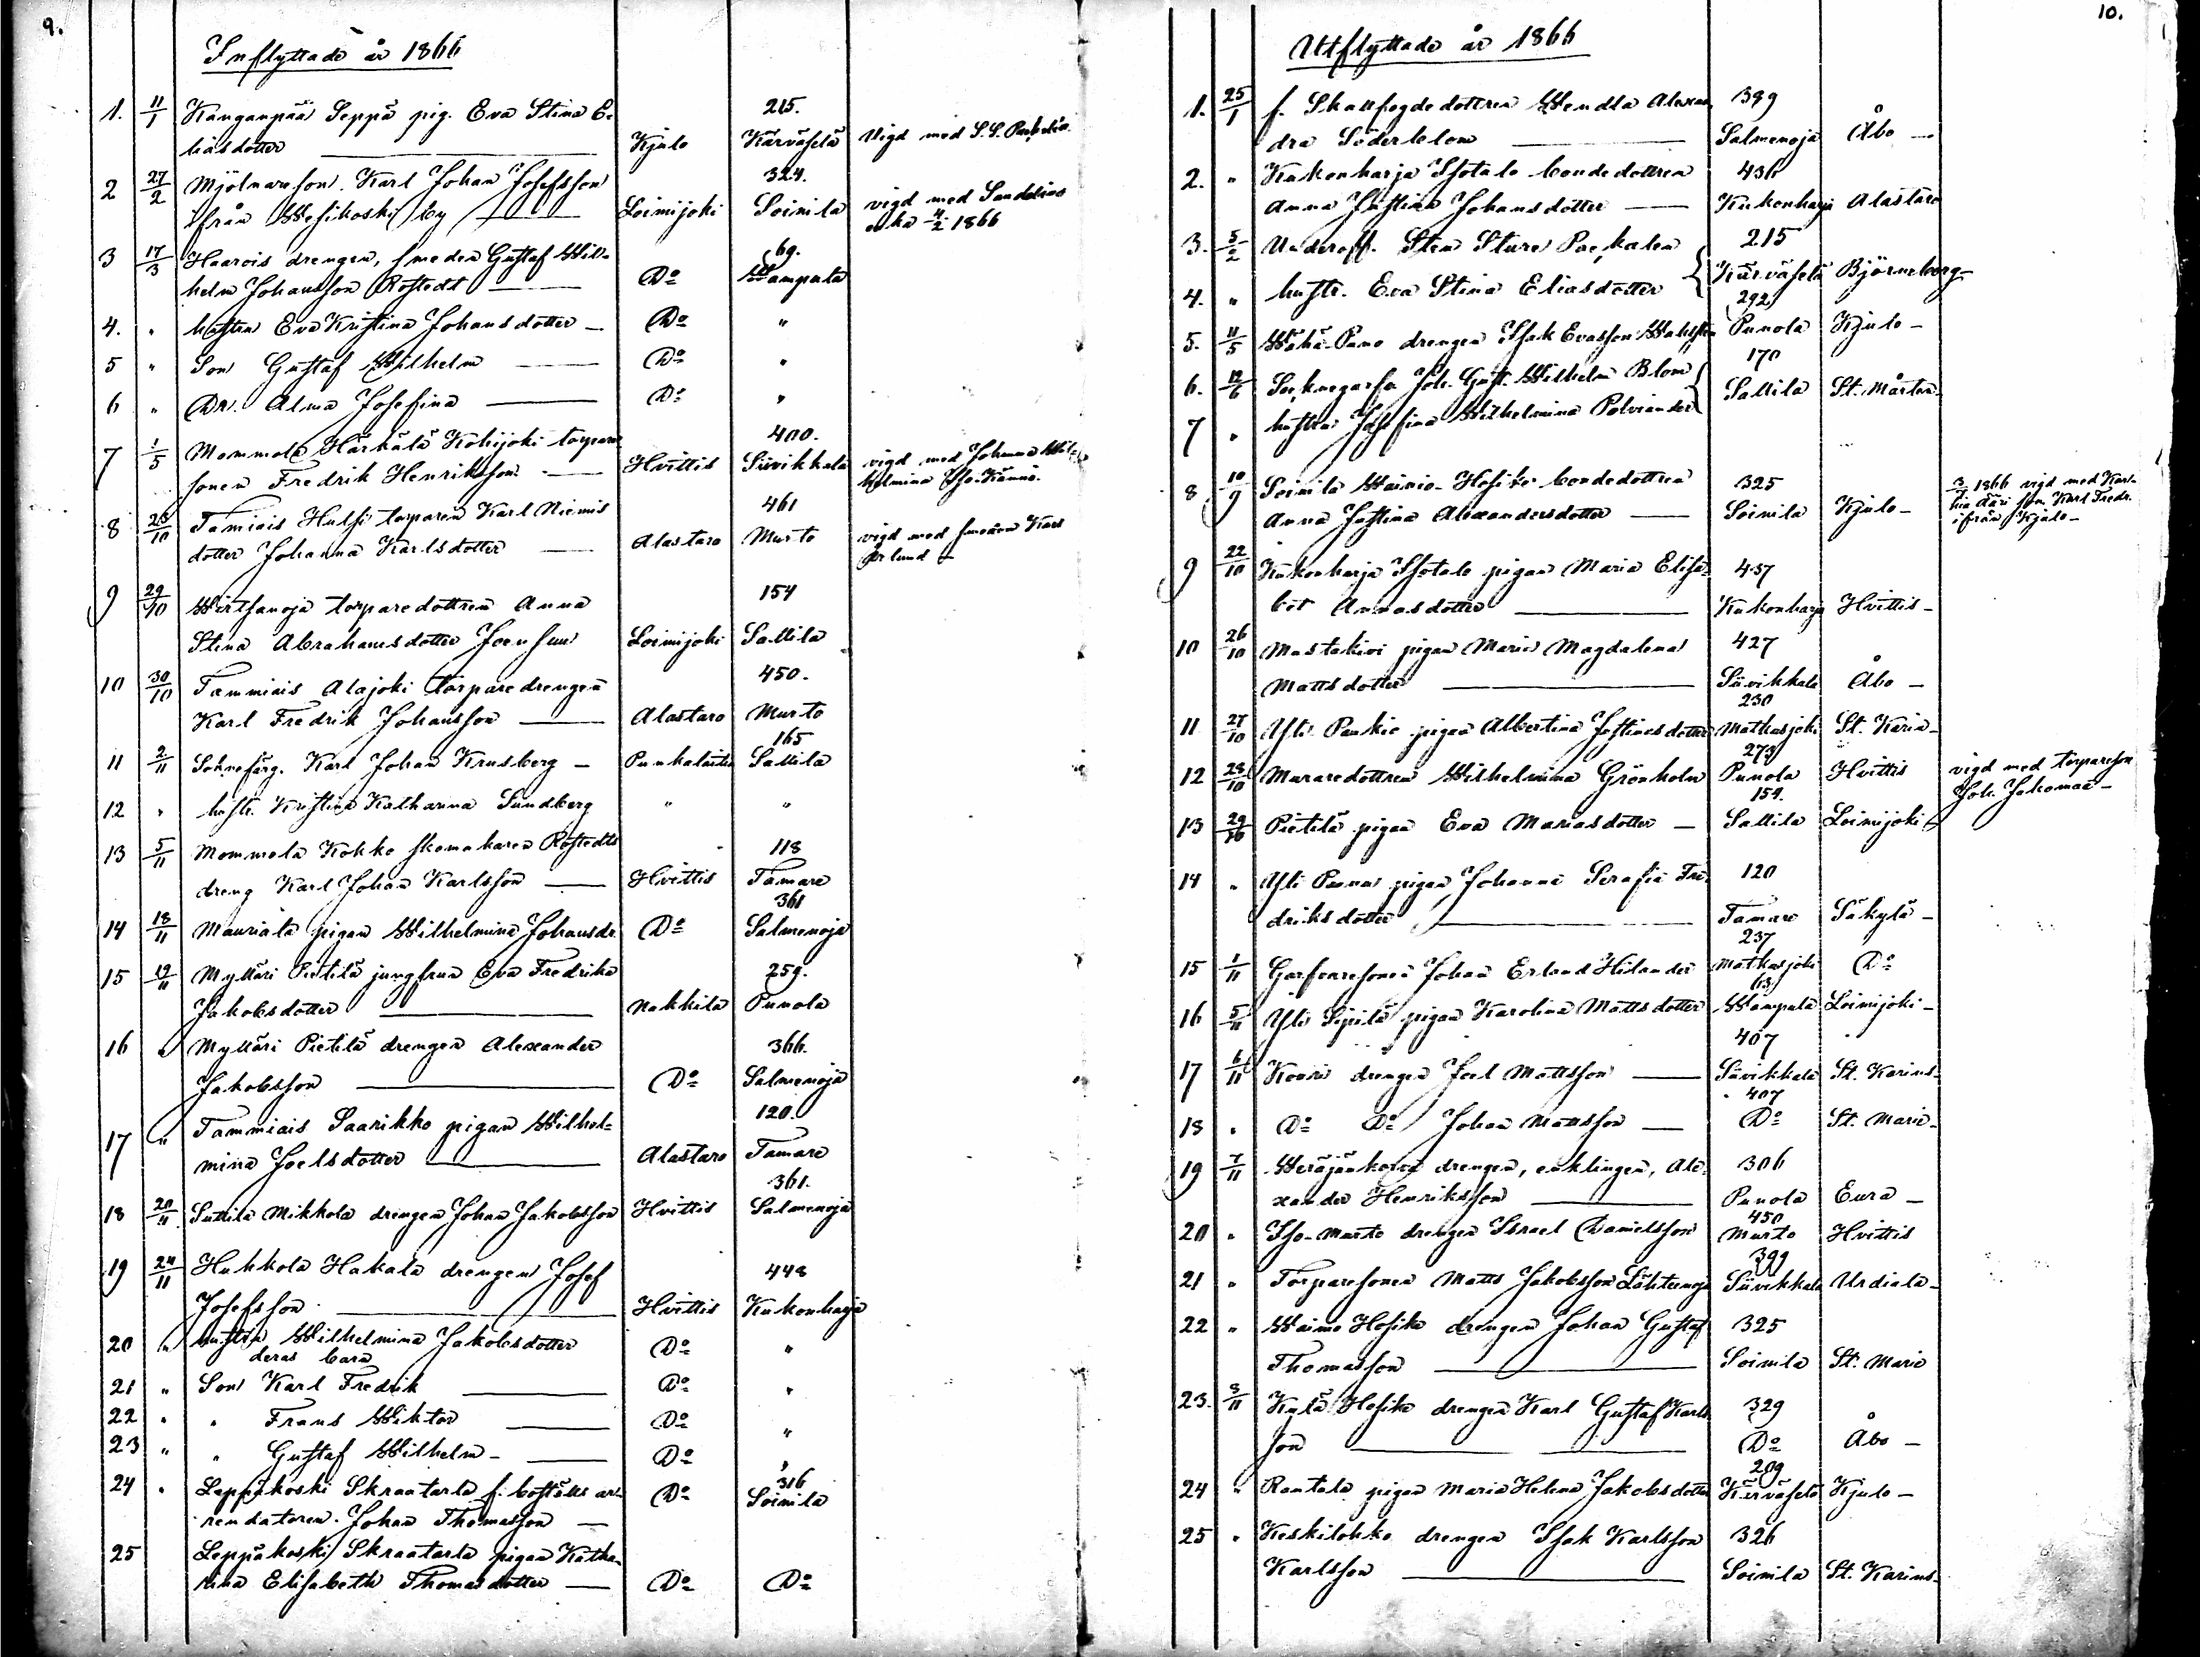 9.
Inflyttade år 1866
1. 11/1 Kanganpää Seppä pig. Eva Stina E- 215.
liasdotter Kjulo Kärväselä Vigd med S. S.
2 27/2 Mjölnareson Karl Johan Josefsson 324.
ifrån Wesikoski by Loimijoki Soinila vigd med
enka 4/2 1866
3 17/3 Haarois drengen, smeden Gustaf Wil- 69.
helm Johansson Rostedt Do Wampula
4. " hustrun Eva Kristina Johansdotter Do "
5 " Son Gustaf Wilhelm Do "
6 " Dr. Alma Josefina Do "
7 1/5 Mommola Härkälä Kohijoki torpare 400.
sonen Fredrik Henriksson Hvittis Süvikkala vigd med Johanna Wil-
helmina Iso-Kännö.
8 23/10 Tamiais Hulsi torparen Karl Niemis 461
dotter Johanna Karlsdotter Alastaro Murto vigd med smeden Karl
9 29/10 Wirtsanoja torparedottren Anna 154
Stina Abrahamsdotter Joensuu Loimijoki Sallila
10 30/10 Tammiais Alajoki torparedrengen 450.
Karl Fredrik Johansson Alastaro Murto
11 2/11 Soknefärg. Karl Johan Krusberg Punkalaitio 165 Sallila
12 " hustr. Kristina Katharina Sundberg " "
13 5/11 Mommola Kokko skomakaren Rostedts 118
dreng Karl Johan Karlsson Hvittis Tamare
14 18/11 Mauriala pigan Wilhelmina Johansdr Do 361 Salmenoja
15 19/11 Mylläri Pietilä jungfrun Eva Fredrika 259.
Jakobsdotter Nakkila Punola
16 " Mylläri Pietilä drengen Alexander 366.
Jakobsson Do Salmenoja
17 " Tammiais Saarikko pigan Wilhel- 120.
mina Joelsdotter Alastaro Tamare
18 20/11 Suttila Mikkola drengen Johan Jakobsson Hvittis 361. Salmenoja
19 24/11 Huhkola Hakala drengen Josef 448
Josefsson Hvittis Kukonharja
20 " hustrun Wilhelmina Jakobsdotter Do "
deras barn
21 " Son Karl Fredrik Do "
22 " " Frans Wiktor Do "
23 " " Gustaf Wilhelm Do "
24 " Leppäkoski Skraatarla f. boställs ar- Do 316 Soinila
rendatoren Johan Thomasson
25 Leppäkoski Skraatarla pigan Katha-
rina Elisabeth Thomasdotter Do Do
10.
Utflyttade år 1866
1. 25/1 f. Skallfogdedottren Wendla Alexan- 399
dra Söderblom Salmenoja Åbo
2. " Kukonharja Isotalo bondedottren 436
Anna Justina Johansdotter Kukonharja Alastaro
3. 5/2 Underoff. Sten Sture 215
4. " hustr. Eva Stina Eliasdotter Kärväselä Björneborg
5. 11/5 Wähä-Puno drengen Isak Evasson 292 Punola Kjulo
6. 12/6 Joh. Gust. Wilhelm Blom 170 Sallila St. Mårten
7 " hustrun Josefina Wilhelmina Polviander
8 10/9 Soinila Wainio-Hosike bondedottren 325 1866 vigd med
Anna Justina Alexandersdotter Soinila Kjulo son Karl Fredr.
ifrån Kjulo
9 22/10 Kukonharja Isotalo pigan Maria Elisa- 437
bet Annasdotter Kukonharja Hvittis
10 26/10 Mastokivi pigan Maria Magdalena 427
Mattsdotter Süvikkala Åbo
11 27/10 Yli Punkio pigan Albertina Justinasdotter 230 Matkusjoki St. Karin
12 28/10 Muraredottren Wilhelmina Grönholm 273 Punola Hvittis vigd med torpareson
Joh. Jokomaa
13 29/10 Pietilä pigan Eva Mariasdotter 154. Sallila Loimijoki
14 " Yli pigan Johanna Serafia Fre- 120
driksdotter Tamare Säkylä
15 1/11 Garfvaresonen Johan Erland Hilander 237 Matkusjoki Do
16 5/11 Yli Sipilä pigan Karolina Mattsdotter Wampula Loimijoki
17 6/11 Kouri drengen Joel Mattsson 407 Süvikkala St. Karins
18 " Do Do Johan Mattsson 407 Do St. Marie
19 7/11 Weräjänkorva drengen, enklingen, Ale- 306
xander Henriksson Punola Eura
20 " Iso-Murto drengen Israel Danielsson 450 Murto Hvittis
21 " Torparesonen Matts Jakobsson Lähteenoja 399 Süvikkala Urdiala
22 " Wainio Hosike drengen Johan Gustaf 325
Thomasson Soinila St. Marie
23. 8/11 Kylä Hosike drengen Karl Gustaf Karls- 329
son Do Åbo
24 " Rantala pigan Maria Helena Jakobsdotter 209 Kärväselä Kjulo
25 " Keskilohko drengen Isak Karlsson 326
Karlsson Soinila St. Karins